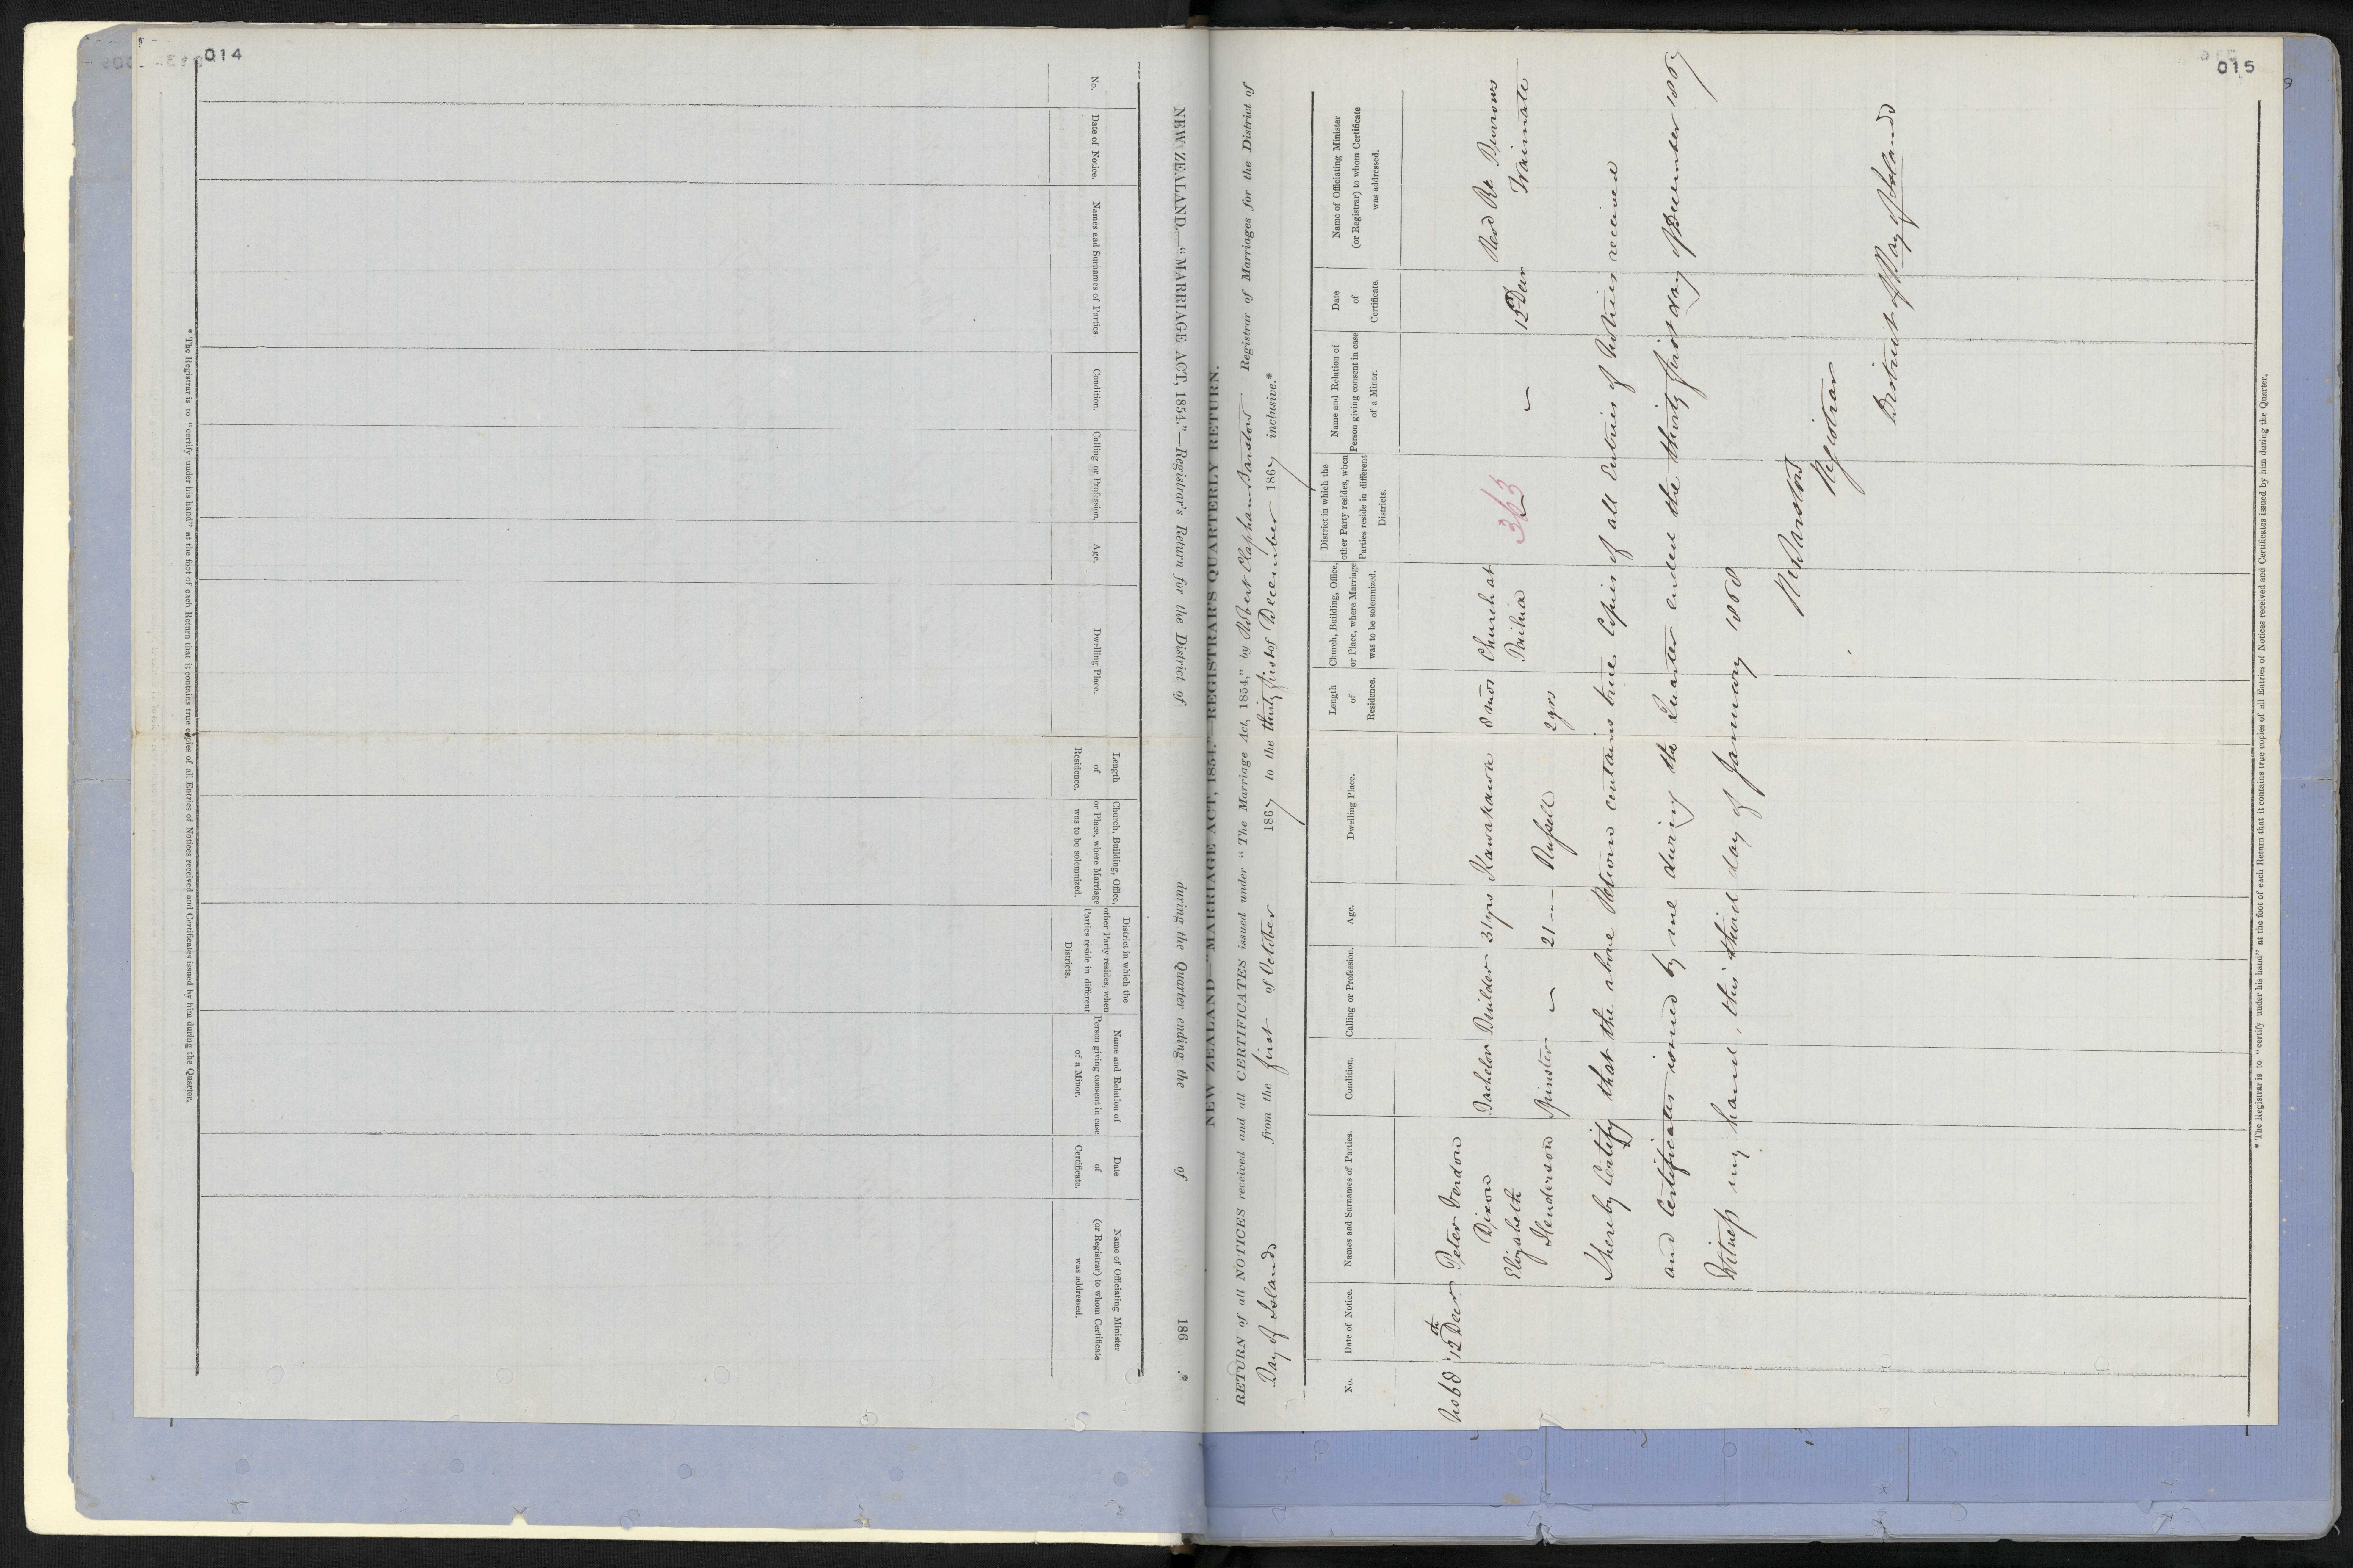 014
NEW ZEALAND.—"MARRIAGE ACT, 1854."—Registrar's Return for the District of during the Quarter ending the of 186 .*
No.
Date of Notice.
Names and Surnames of Parties
Condition.
Calling or Profession.
Age.
Dwelling Place.
Length
of
Residence.
Church, Building, Office,
or Place, where Marriage
was to be solemnized.
District in which the
other Party resides, when
Parties reside in different
Districts.
Name and Relation of
Person giving consent in case
of a Minor.
Date
of
Certificate.
Name of Officiating Minister
(or Registrar) to whom Certificate
was addressed.
*The Registrar is to "certify under his hand" at the foot of each Return that it contains true copies of all Entries of Notices received and Certificates issued by him during the Quarter.
015
NEW ZEALAND—"MARRIAGE ACT, 1854."—REGISTRAR'S QUARTERLY RETURN.
RETURN of all NOTICES received and all CERTIFICATES issued under "The Marriage Act, 1854," by Robert Clapham Barstow Registrar of Marriages for the District of
Bay of Islands from the first of October 1867 to the thirty first of December 1867 inclusive.*
No.
Date of Notice.
Names and Surnames of Parties.
Condition.
Calling or Profession.
Age.
Dwelling Place.
Length
of
Residence.
Church, Building, Office,
or Place, where Marriage
was to be solemnized.
District in which the
other Party resides, when
Parties reside in different
Districts.
Name and Relation of
Person giving consent in case
of a Minor.
Date
of
Certificate.
Name of Officiating Minister
(or Registrar) to whom Certificate
was addressed.
No 68 12th Decr Peter Verdon
Dixon Bachelor Builder 31 yrs Kawakawa 8 mos Church at Revd Rt Burrows
Elizabeth Paihia 363 12 Decr Waimate
Henderson Spinster 21 Russell 2 yrs
I hereby Certify that the above Return contains true Copies of all Entries of Notices received
and Certificates issued by me during the Quarter ended the thirty first day of December 1867
Witness my hand, this third day of January 1868
RCBarstow
Registrar
District of Bay of Islands
*The Registrar is to "certify under his hand" at the foot of each Return that it contains true copies of all Entries of Notices received and Certificates issued by him during the Quarter.